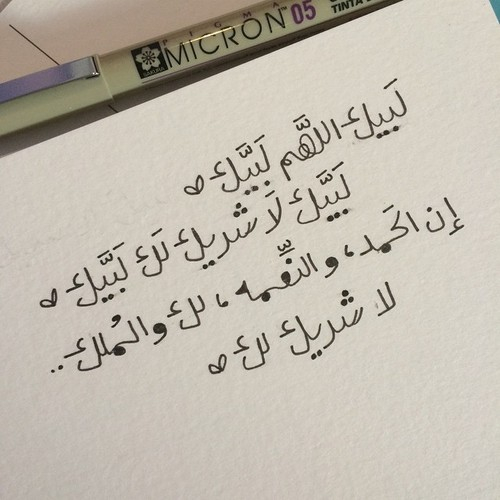 PIGMA™
MICRON 05
SAKURA
لَبيكَ اللَّهُم لَبيَّك
لَبيَّك لَا شريك لَكَ لَبَيَّك
إن الحَمد، والنِّعمه، لك والمُلك..
لا شريك لك